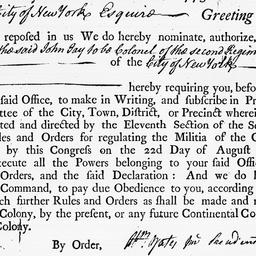 City of New York Esquire Greeting
reposed in us We do hereby nominate, authorize,
the said John Jay to be Colonel of the second Regim
of the City of New York
hereby requiring you, befo
said Office, to make in Writing, and subscribe in Pr
ttee of the City, Town, District, or Precinct wherei
ted and directed by the Eleventh Section of the Se
les and Orders for regulating the Militia of the C
by this Congress on the 22d Day of August
xecute all the Powers belonging to your said Offi
Orders, and the said Declaration : And we do l
Command, to pay due Obedience to you, according
ch further Rules and Orders as shall be made and r
Colony, by the present, or any future Continental Co
Colony.
By Order, Yates